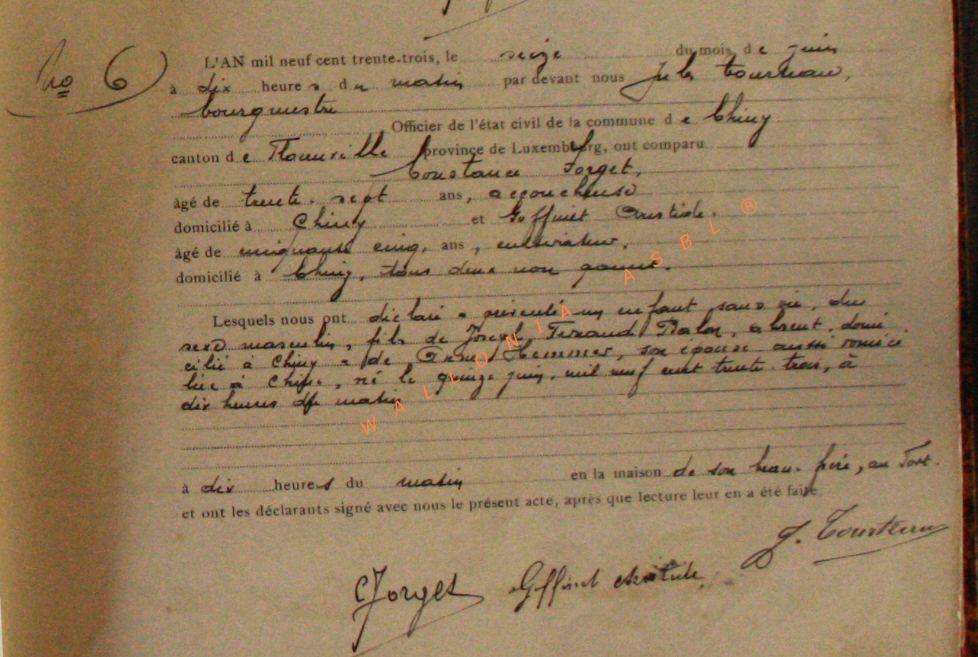 No 6
L'AN mil neuf cent trente-trois, le seize du mois de juin
à dix heures du matin par devant nous Jules
bourgmestre
Officier de l'état civil de la commune de Chiny
canton de Florenville province de Luxembourg, ont comparu
Constance Forget,
âgé de trente-sept ans, accoucheuse
domicilié à Chiny et Goffinet Aristide.
âgé de cinquante cinq ans, cultivateur,
domicilié à Chiny, tous deux non parent.
Lesquels nous ont déclaré & présenté un enfant sans vie, du
sexe masculin, fils de Joseph Fernand absent, domi
cilié à Chiny & de Hemmer, son épouse aussi domici
liée à Chiny, né le quinze juin mil neuf cent trente-trois, à
dix heures du matin
à dix heures du matin en la maison de son beau-père, au
et ont les déclarants signé avec nous le présent acte, après que lecture leur en a été faite.
J.
C Forget Goffinet Aristide
WALLONIA ASBL ®